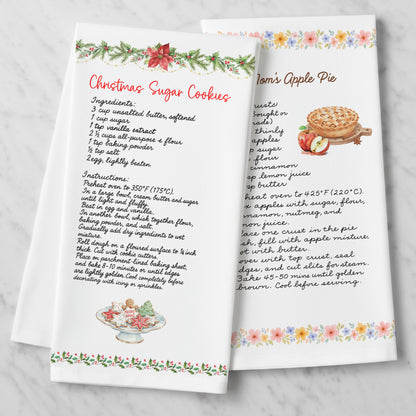 Christmas Sugar Cookies
Ingredients:
3 cup unsalted butter, softened
1 cup sugar
1 tsp vanilla extract
2 ½ cups all-purpose flour
1 tsp baking powder
½ tsp salt
2egg, lightly beaten
Instructions:
Preheat oven to 350°F (175°C).
In a large bowl, cream butter and sugar
until light and fluffy.
Beat in egg and vanilla.
In another bowl, which together flour,
baking powder, and salt.
Gradually add dry ingredients to wet
mixture.
Roll dough on a floured surface to ¼ inch
thick. Cut with cookie cutters.
Place on parchment-lined baking sheet,
and bake 8-10 minutes or until edges
are lightly golden. Cool completely before
decorating with icing or sprinkles.
Mom's Apple Pie
crusts
bought or
made)
thinly
apples
sugar
flour
cinnamon
lemon juice
butter
heat oven to 425°F (220°C).
apples with sugar, flour,
namon, nutmeg, and
mon juice.
ace one crust in the pie
sh, fill with apple mixture,
ot with butter.
over with top crust, seal
dges, and cut slits for steam.
Bake 45-50 mins until golden
brown. Cool before serving.